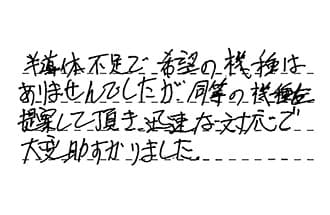 半導体不足で希望の機種は
ありませんでしたが同等の機種を
提案して頂き迅速な対応で
大変助すかりました。